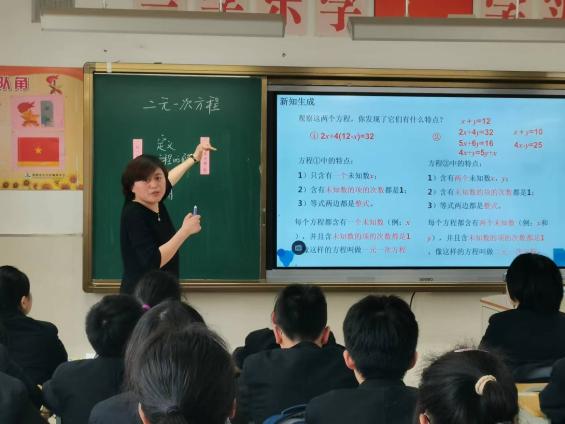 队角
二元一次方程
定义
新知生成
观察这两个方程，你发现了它们有什么特点？
① 2x+4(12-x)=32
②
x+y=12
2x+4y=32
5x+6y=16
4x+y=5y+x
x+y=10
4x-y=25
方程①中的特点：
1）只含有一个未知数x；
2）含有未知数的项的次数都是1；
3）等式两边都是整式。
每个方程都含有一个未知数（例：x
），并且含未知数的项的次数都是1
这样的方程叫做一元一次方程
方程②中的特点：
1）含有两个未知数x，y
2）含有未知数的项的次数都是1；
3）等式两边都是整式。
每个方程都含有两个未知数（例：x和
y），并且含未知数的项的次数都是1
，像这样的方程叫做二元一次方程